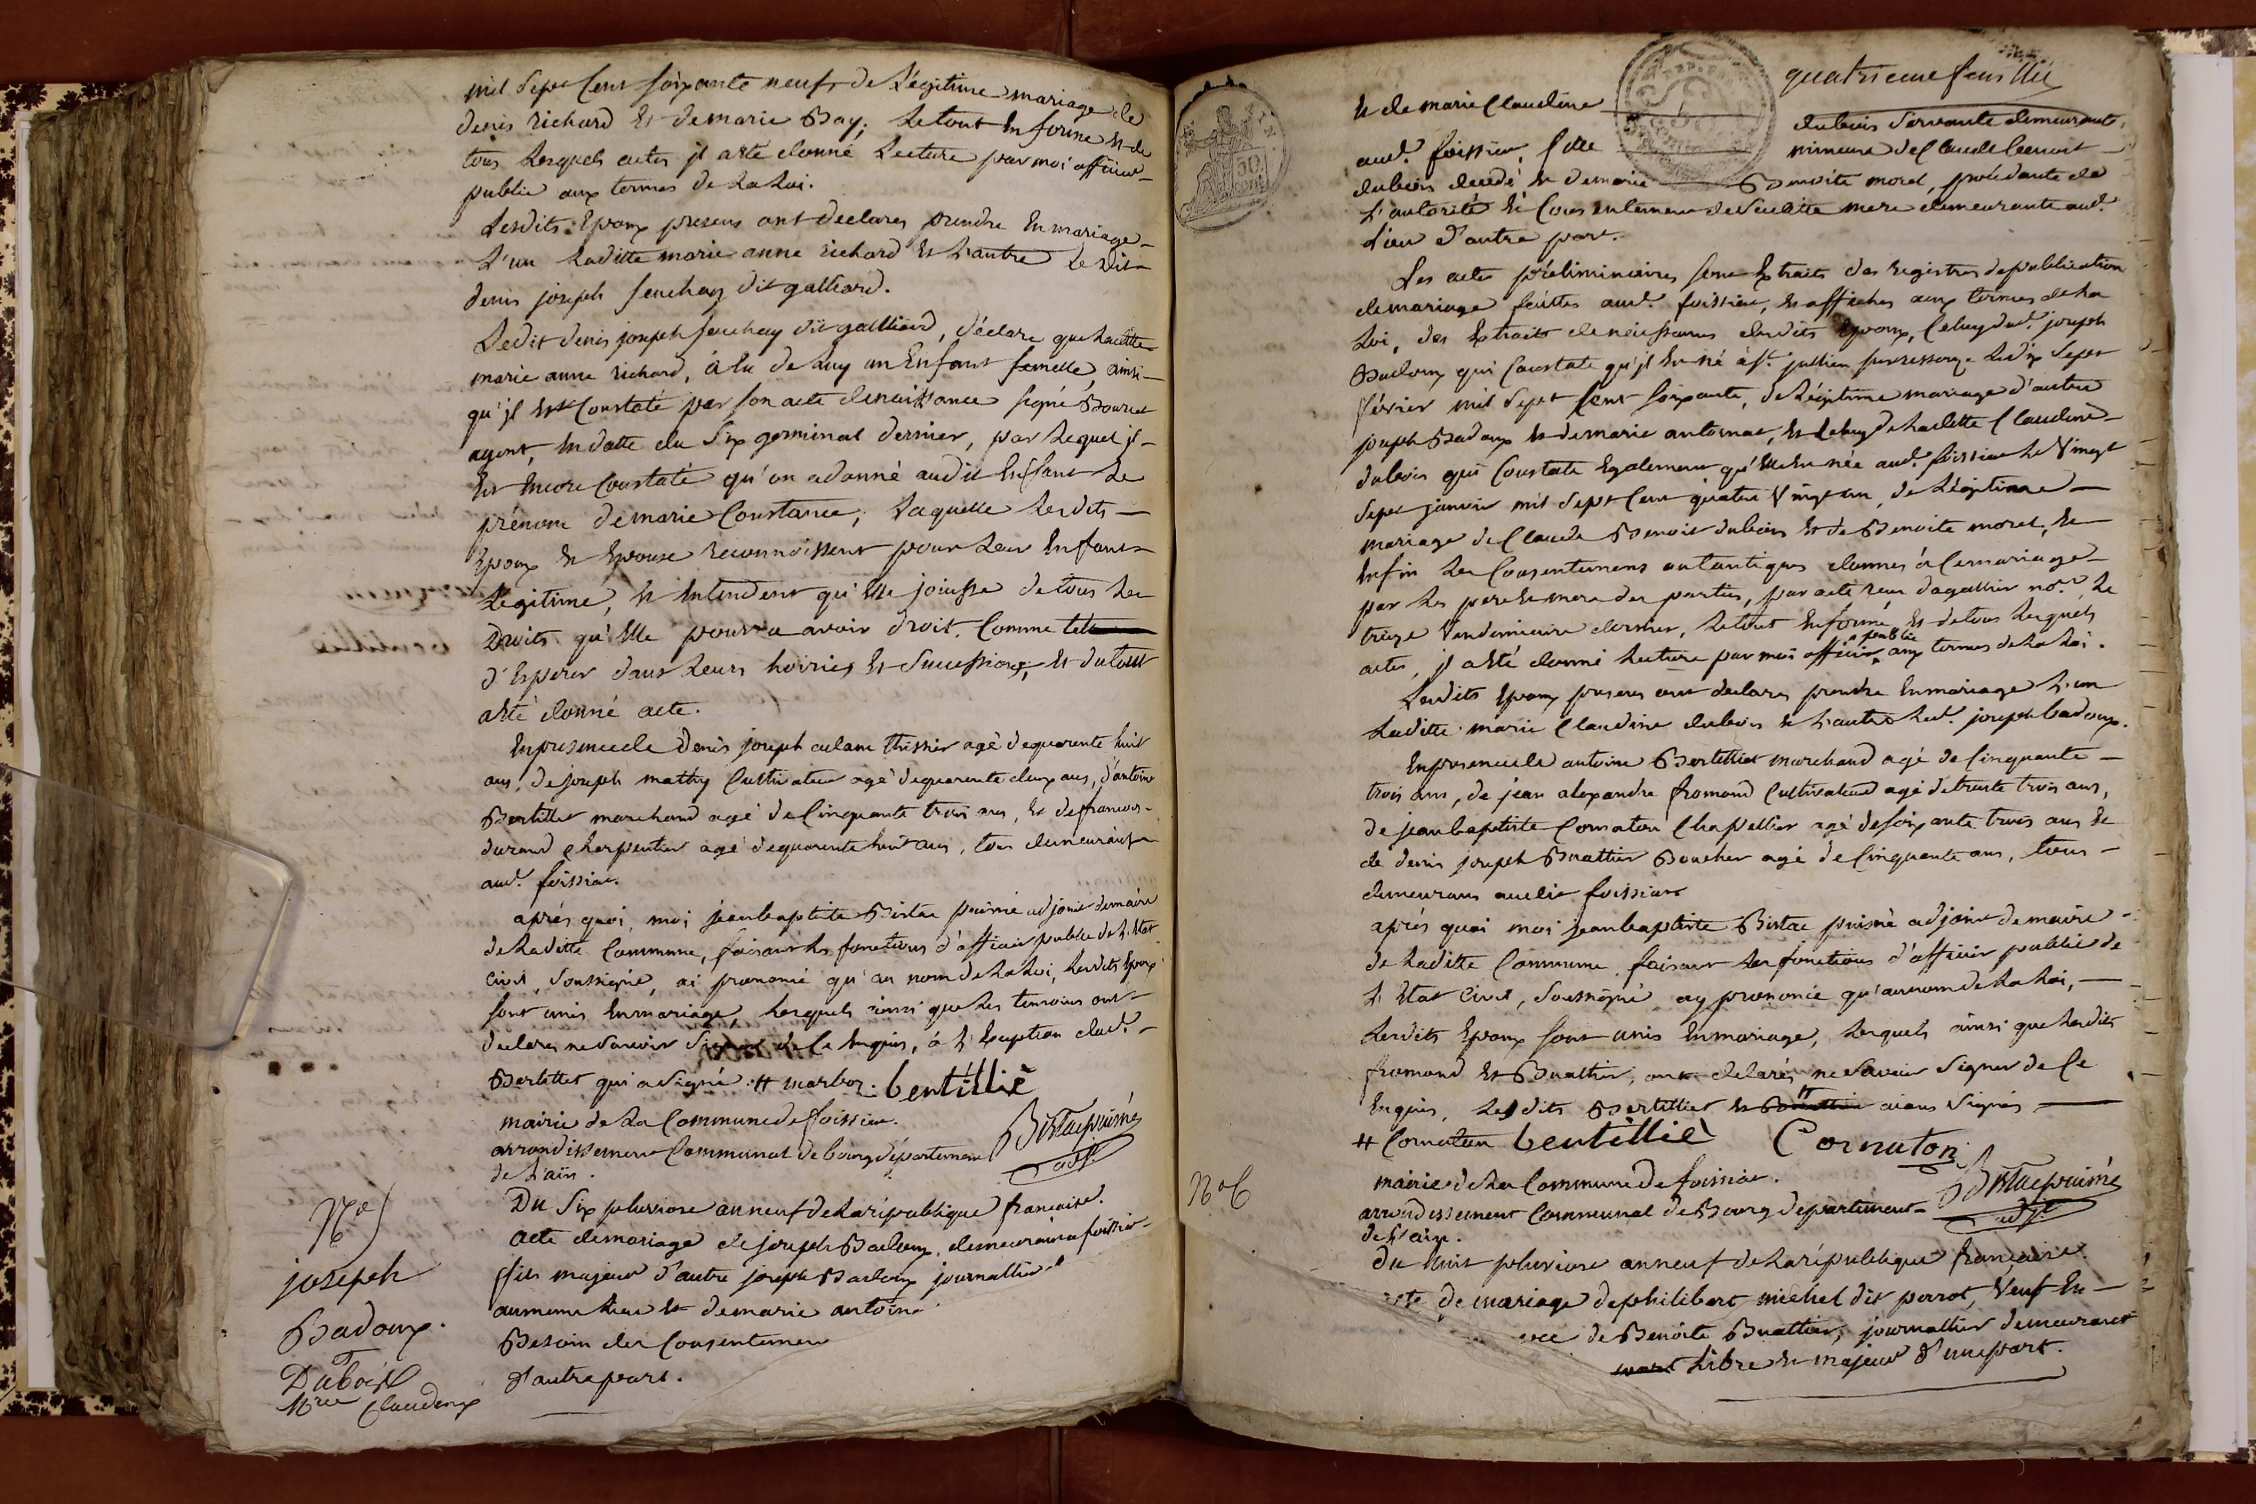 mil Sept Cent soixante neuf, de Légitime mariage de
denis richard Et de marie Bay; Le tout En forme Et de
tous Lesquels actes jl a été donné Lecture par moi officier
public aux termes de La Loi.
Lesdits Epoux presens ont declarez prendre En mariage
L'un Laditte marie anne richard Et L'autre Le dit
denis joseph fenchay dit galliard.
Ledit denis joseph fenchay dit galliard, déclare que Laditte
marie anne richard, à Eu de Luy un Enfant femelle, ainsi
qu'jl Est Constaté par son acte denaissance signé
agent, En datte du Six germinal dernier, par Lequel jl
Est Encore Constaté qu'on adonné audit Enfant Le
prénom de marie Constance, Laquelle Lesdits
Epoux Et Epouse reconnoissent pour Leur Enfant
Legitime, Et Entendent qu'Elle jouisse de tous Les
Droits qu'Elle pourra avoir droit, Comme
d'Esperer dans Leurs hoiries Et Successions, Et dutout
a été donné acte.
Enpresence de Denis joseph adam tissier agé dequarente huit
ans, de joseph mathy Cultivateur agé dequarente deux ans, d'antoine
Bertillier marchand agé de Cinquante trois ans, Et de francois
durand Charpentier agé dequarente huit ans, tous demeurants
aud. foissiat.
aprés quoi, moi jeanbaptiste Bistac puisné adjoint de maire
de Laditte Commune, faisant Les fonctions d'officier public de L'Etat
civil, Soussigné, ai prononcé qu'au nom de La Loi, Lesdits Epoux
sont unis En mariage, Lesquels ainsi que Les temoins ont
declarez ne Savoir Signer de Ce Enquis, à L'Exception dud.
Bertillier qui a Signé.
bertillié
mairie de La Commune de foissiat.
arrondissement Communal de bourg département
de L'ain.
Bistac puisné
adjt.
Du Six pluviose an neuf de La république francaise.
N°5
joseph
Badoux.
et
Dubois
Mrie Claudine
acte demariage de joseph Badoux, demeurant a foissiat
fils majeur d'autre joseph Badoux journallier
aumeme Lieu Et de marie antoine
Besoin de Consentement
d'autre part.
quatrieme feuillet
Et de marie Claudine dubois Servante demeurante
aud. foissiat, fille mineure de Claude benoit
dubois decedé, Et de marie Benoite morel, procedante de
L'autorité Et Consentement de Saditte mere demeurante aud.
Lieu d'autre part.
Les actes préliminaires sont Extraits des registres de publication
de mariage faittes aud. foissiat, Et affichés aux termes de La
Loi, des Extraits de naissances desdits Epoux, Celuy dud. joseph
Badoux qui Constate qu'jl Est né à st. jullien sur ressouze Le dix Sept
février mil Sept Cent soixante, de Légitime mariage d'autre
joseph Badoux Et de marie antoinat, Et Celuy de Laditte Claudine
dubois qui Constate Egalement qu'Elle Est née aud. foissiat Le Vingt
Sept janvier mil Sept Cent quatre Vingt un, de Légitime
mariage de Claude Benoit dubois Et de Benoite morel, Et
Enfin Les Consentemens autantiques donnés à Ce mariage
par Les pere Et mere des parties, par acte reçu dagallier nore. Le
treize Vendemiaire dernier, Le tout En forme, Et de tous Lesquels
actes, jl a été donné Lecture par moi officier public aux termes de La Loi.
Lesdits Epoux presens ont declarez prendre En mariage L'un
Laditte marie Claudine dubois Et L'autre Led. joseph badoux.
Enpresence de antoine Bertillier marchand agé de Cinquante
trois ans, de jean alexandre fromond Cultivateur agé de trente trois ans,
de jeanbaptiste Cornaton Chapellier agé de soixante trois ans Et
de denis joseph Buathier Boucher agé de Cinquante ans, tous
demeurans audit foissiat
aprés quoi moi jeanbaptiste Bistac puisné adjoint de maire
de Laditte Commune, faisant Les fonctions d'officier public de
L'Etat Civil, Soussigné, ay prononcé qu'au nom de La Loi,
Lesdits Epoux sont unis En mariage, Lesquels ainsi que Lesdits
fromond Et Buathier, ont declarés ne Savoir Signer de Ce
Enquis, Lesdits Bertillier Et Buathier aians Signés
# Cornaton bertillié Cornaton
mairie de La Commune de foissiat.
arrondissement Communal de Bourg departement
de L'ain.
Bistac puisné
adjt.
N°6
Du huit pluviose an neuf de La république francaise.
acte de mariage de philibert michel dit perrot, Veuf En
de Benoite Buathier, journallier demeurant
Libre Et majeur d'une part.